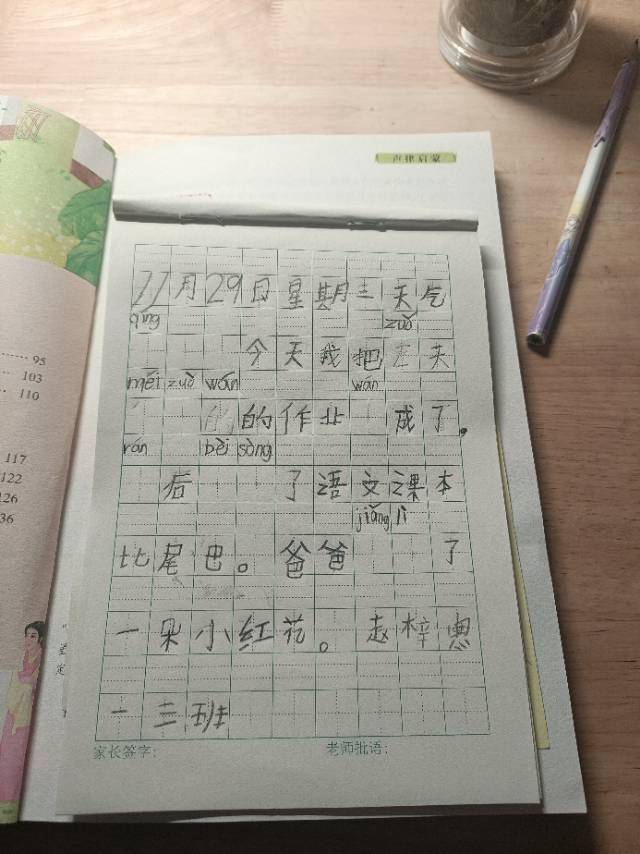 声律启蒙
95
103
110
117
122
126
136
11月29日星期三天气
qíng zuó
今天我把左天
méi zuò wán wán
的的作业 成了。
rán bèi sòng
后 了语文课本
jiǎng lì
比尾巴。爸爸 了
一朵小红花。赵梓
一三班
家长签字: 老师批语: